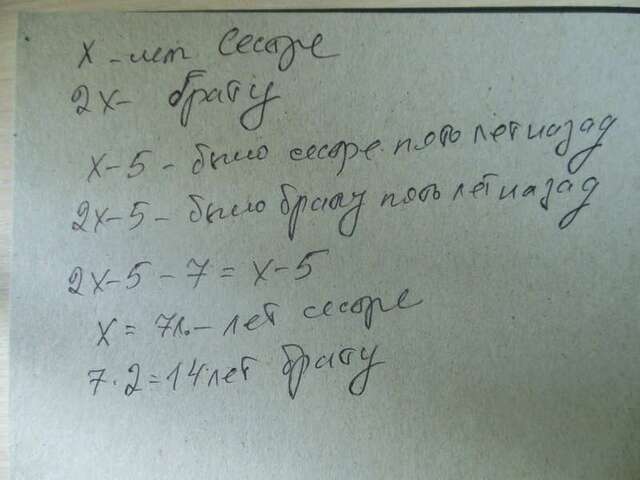 x - лет сестре
2x - брату
x-5 - было сестре пять лет назад
2x-5 - было брату пять лет назад
2x-5-7=x-5
x=7л.- лет сестре
7·2=14 лет брату